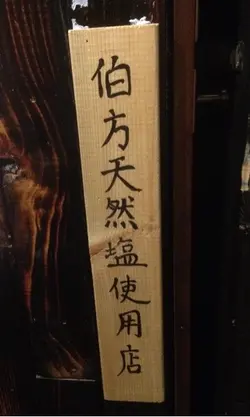 伯方天然塩使用店